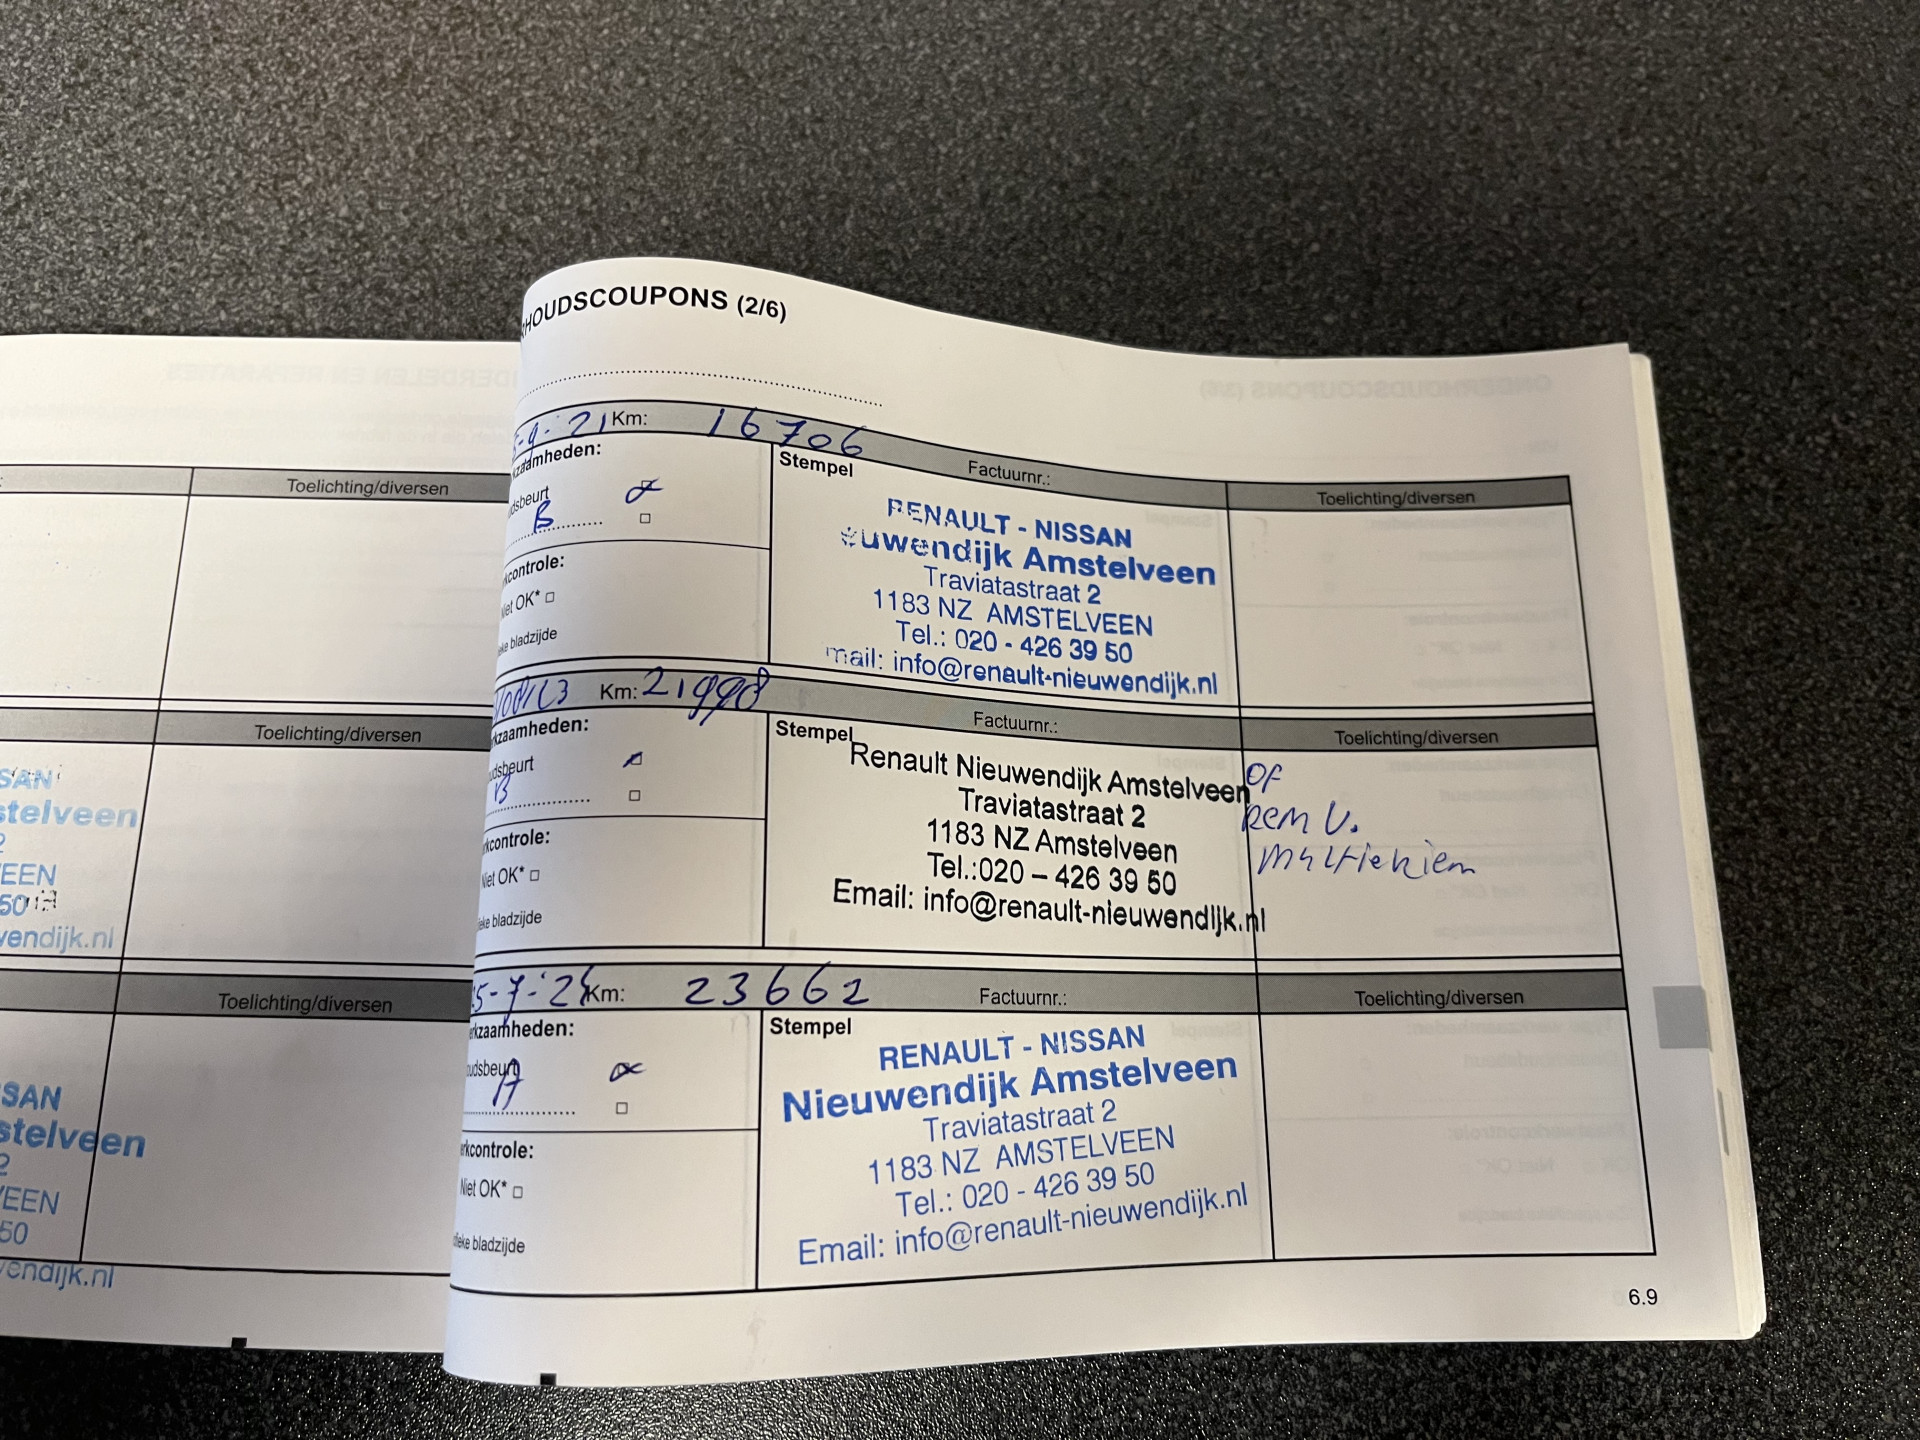 HOUDSCOUPONS (2/6)
-9-21 Km: 16706
Stempel
Factuurnr.:
Toelichting/diversen
B
RENAULT - NISSAN
euwendijk Amstelveen
Traviatastraat 2
1183 NZ AMSTELVEEN
Tel.: 020 - 426 39 50
mail: info@renault-nieuwendijk.nl
kzaamheden:
dsbeurt
kcontrole:
Niet OK*
eke bladzijde
Km: 21998
Stempel
Factuurnr.:
Toelichting/diversen
rkzaamheden:
udsbeurt
B
rkcontrole:
Niet OK*
ieke bladzijde
Renault Nieuwendijk Amstelveen
Traviatastraat 2
1183 NZ Amstelveen
Tel.:020 – 426 39 50
Email: info@renault-nieuwendijk.nl
OF
Rem V.
multiriem
5-7-24 Km: 23662
Stempel
Factuurnr.:
Toelichting/diversen
erkzaamheden:
oudsbeurt
A
erkcontrole:
Niet OK*
fieke bladzijde
RENAULT - NISSAN
Nieuwendijk Amstelveen
Traviatastraat 2
1183 NZ AMSTELVEEN
Tel.: 020 - 426 39 50
Email: info@renault-nieuwendijk.nl
6.9
Toelichting/diversen
Toelichting/diversen
SAN
stelveen
2
VEEN
50
vendijk.nl
Toelichting/diversen
SSAN
stelveen
2
VEEN
50
vendijk.nl